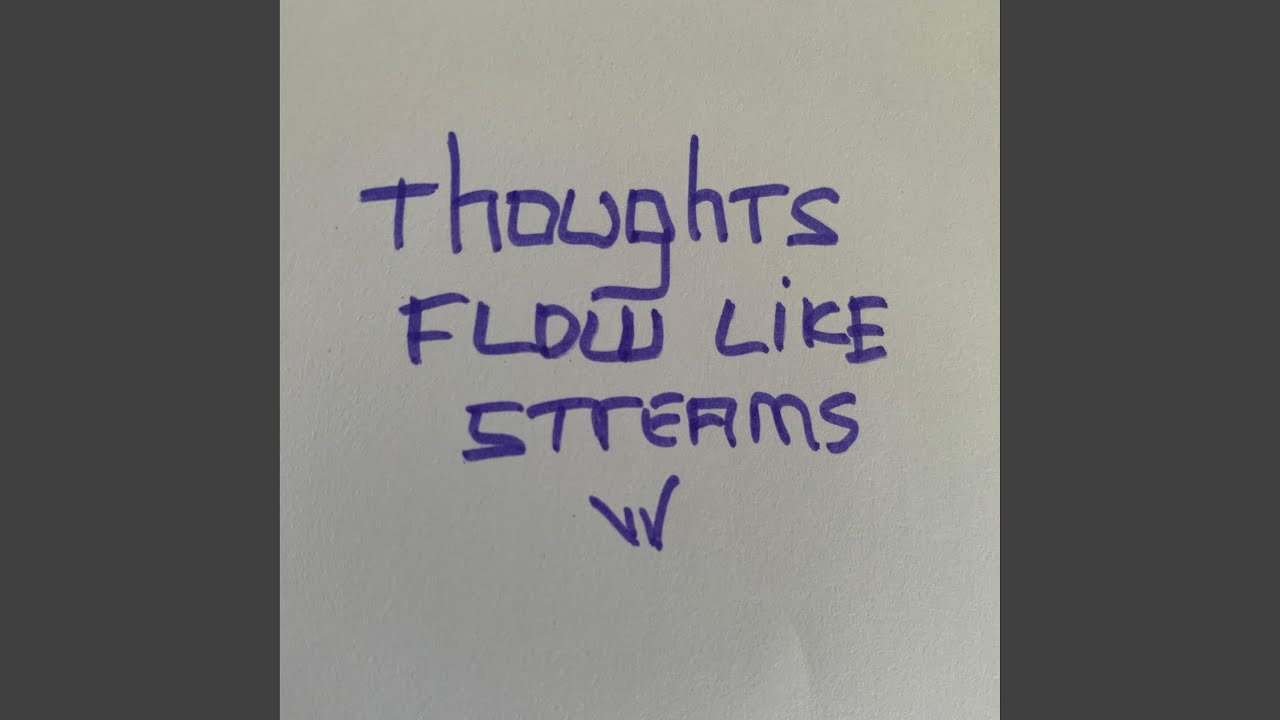 Thoughts
FLOW LiKE
STREAMS
W